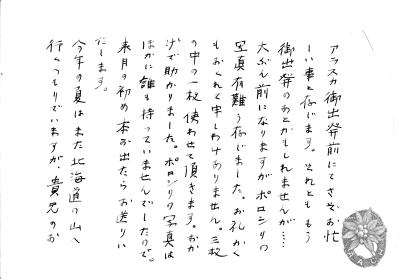 アラスカ御出発前にてさぞお忙
しい事と存じます。それとももう
御出発のあとかもしれませんが……
大ぶん前になりますがポロシリの
写真有難う存じました。お礼がく
もおくれて申しわけありません。三枚
の中の一枚使わせて頂きます。おか
げで助かりました。ポロシリの写真は
ほかに誰も持っていませんでしたので。
来月の初め本が出たらお送りい
たします。
今年の夏はまた北海道の山へ
行くつもりでいますが、貴兄のお